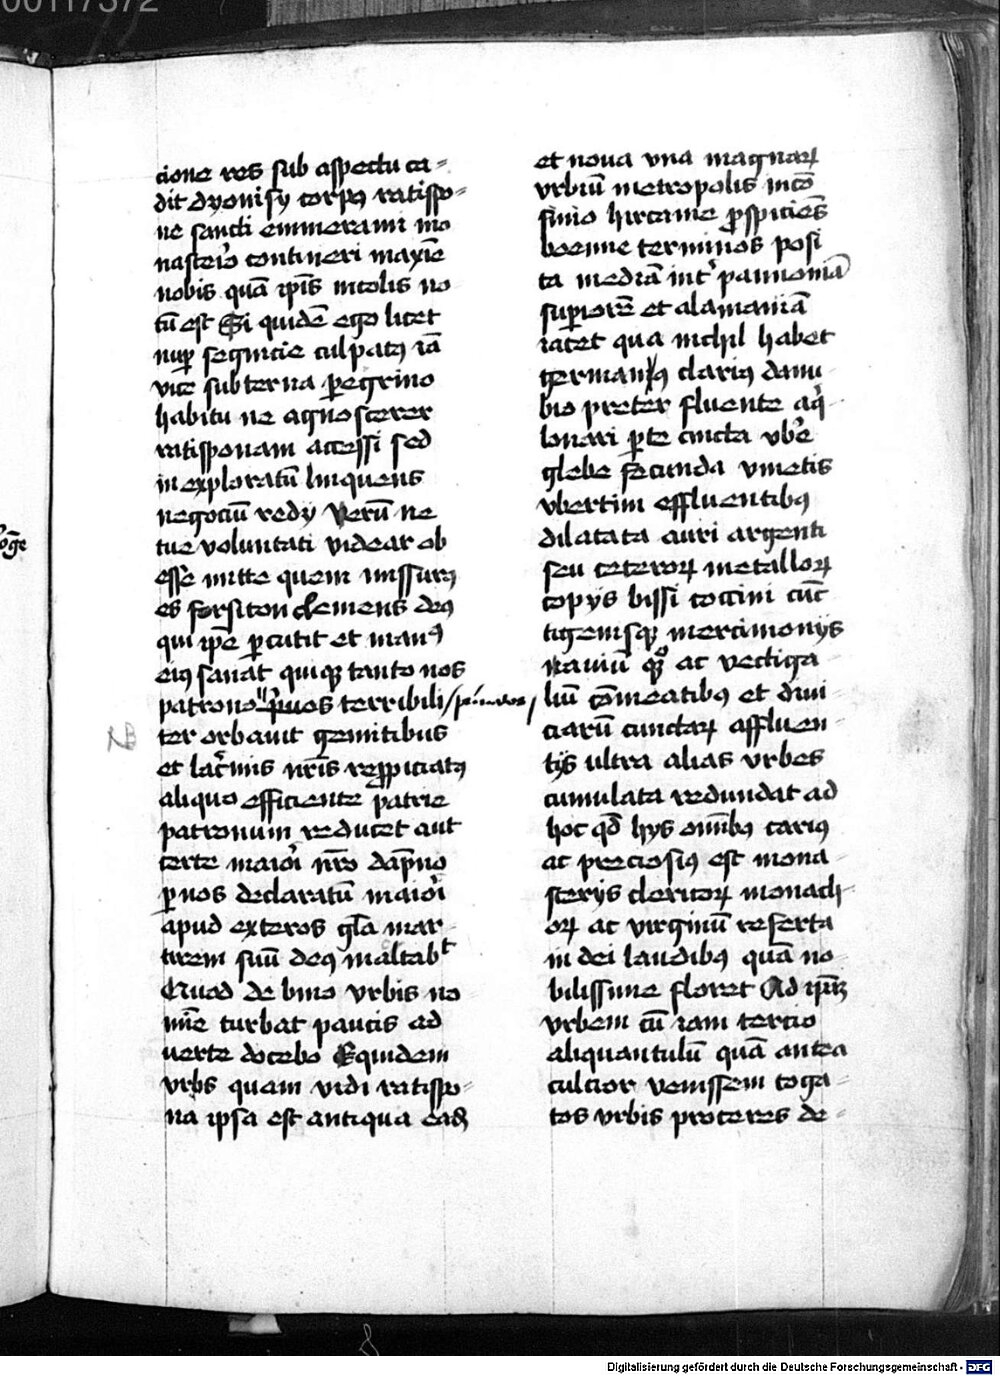 00117372
cione res sub aspectu ca-
dit dyonisy corpꝰ ratispo-
ne sancti emmerami mo
nasterio contineri maxīe
nobis quā ip̄is incolis no
tū est Si quidē ego licet
nuꝑ segnicie culpatꝰ iā
vice subterna ꝑegrino
habitu ne agnoscerer
ratisponam accessi sed
in exploratū linquens
negociū redy Verū ne
tue voluntati videar ob
esse mitte quem missurꝰ
es forsiton clemens deꝰ
qui ip̄e ꝑcutit et manꝰ
eiꝰ sanat quiqꝫ tanto nos
patrono terribili
ter orbauit gemitibus
et lac̄mis nr̄is respiciatꝰ
aliquo efficiente patrie
patronum reducet aut
certe maiori nr̄o dāpno
ꝑ nos declaratū maiori
apud exteros gl̄a mar-
tirem suū deꝰ maltabᵗ
Quod de bino vrbis no
mīe turbat paucis ad
uerte docebo Equidem
vrbs quam vidi ratispo-
na ipsa est antiqua eadꝫ
et noua vna magnaꝝ
vrbiū metropolis in cō
finio hircanie ꝓspiciēs
boemie terminos posi
ta mediā int̄ pannoniā
suꝑiorē et alamaniā
iacet qua nichil habet
germania clariꝰ danu-
bio preter fluente aq̇-
lonari ꝑte cincta vb̄e
glebe fecunda vinetis
vbertim effluentibꝰ
dilatata auri argenti
seu ceteroꝝ metalloꝝ
copys bissi coccini cūc
tigenisqꝫ mercimonys
nauiū qꝫ ac vectiga-
liū cōmeatibꝰ et diui-
ciarū cunctaꝝ affluen-
tys ultra alias vrbes
cumulata redundat ad
hoc qd̄ hys omībꝰ cariꝰ
ac preciosiꝰ est mona-
sterys clericoꝝ monach-
oꝝ ac virginū referta
in dei laudibꝰ quā no-
bilissime floret Ad ip̄am
vrbem cū iam tercio
aliquantulū quā antea
culcior venissem toga-
tos vrbis proceres de-
Digitalisierung gefördert durch die Deutsche Forschungsgemeinschaft - DFG